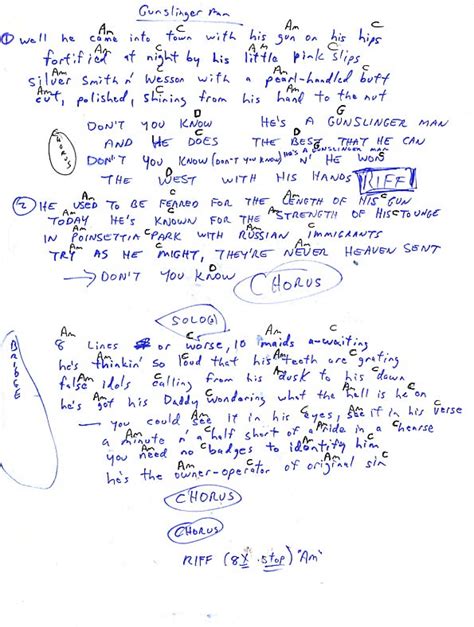 Gunslinger Man
Am C Am C
① Well he came into town with his gun on his hips
Am C Am C
fortified at night by his little pink slips
Am C Am C
silver Smith n' Wesson with a pearl-handled butt
Am C Am C
cut, polished, shining from his hand to the nut
CHORUS
D G
DON'T YOU KNOW HE'S A GUNSLINGER MAN
D C D C
AND HE DOES THE BEST THAT HE CAN
DON'T YOU KNOW (DON'T YOU KNOW) (HE'S A GUNSLINGER MAN) N' HE WON
D C
THE WEST WITH HIS HANDS RIFF
Am C Am C
② HE USED TO BE FEARED FOR THE LENGTH OF HIS GUN
Am C Am C
TODAY HE'S KNOWN FOR THE STRENGTH OF HIS TOUNGE
Am C Am C
IN POINSETTIA PARK WITH RUSSIAN IMMIGRANTS
Am C Am C
TRY AS HE MIGHT, THEY'RE NEVER HEAVEN SENT
→ DON'T YOU KNOW CHORUS
SOLO(s)
BRIDGE
Am C Am C
8 Lines or worse, 10 maids a-waiting
Am C Am C
he's thinkin' so loud that his teeth are grating
Am C Am C
false idols calling from his dusk to his dawn
Am C Am C
he's got his Daddy wondering what the hell is he on
Am C Am C
you could see it in his eyes, see it in his verse
Am C Am C
a minute n' a half short of a ride in a hearse
Am C Am C
you need no badges to identify him
Am C Am C
he's the owner-operator of original sin
CHORUS
CHORUS
RIFF (8X stop) "Am"